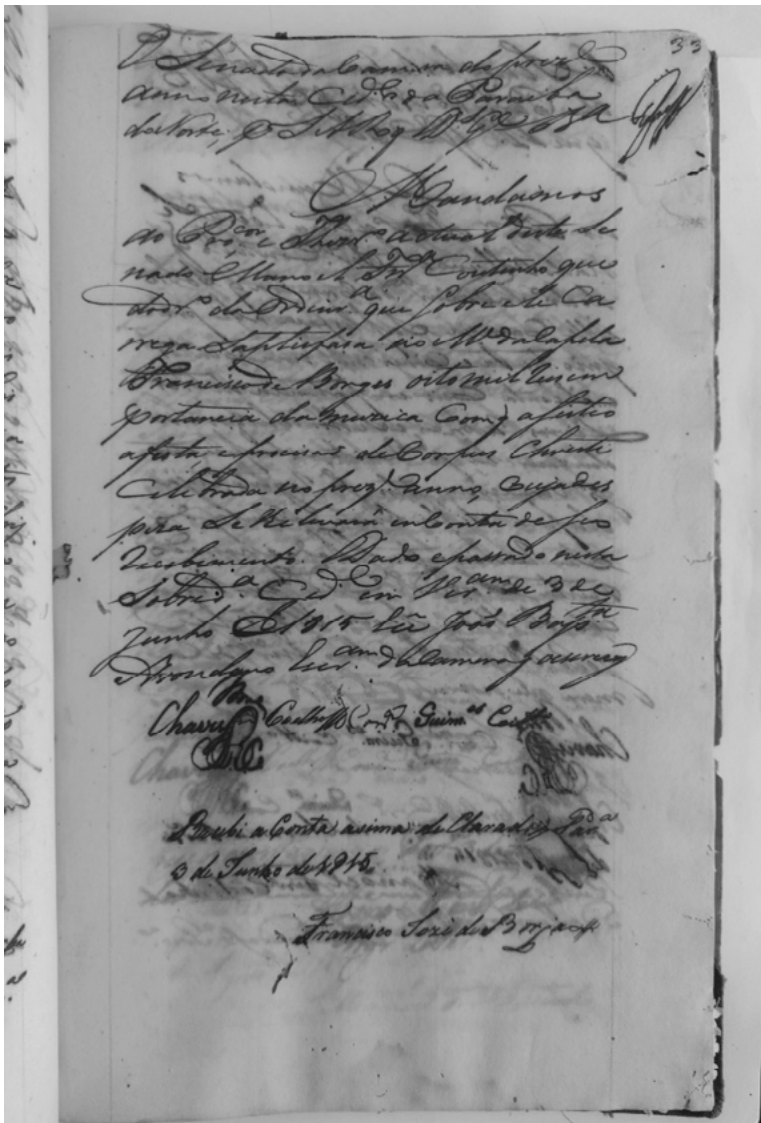 33
O Senado da Camera do prez.e
anno nesta Cid.e da Paraiba
do Norte, p S. A. R. q D.s g.e
Mandamos
ao Pro.cor e Thezr.o actual deste Se
nado Manoel Coutinho que
do dr.o da Ordinr.a que sobre ele Ca
rrega Satisfasa ao M.e da Capela
Francisco de Borges oito mil reis em
portancia da muzica Com q asestio
a festa e procisaõ de Corpus Christe
Celebrada no prez.e anno, Cuja des
peza Se lhe levará em Conta de seo
recebimento. Dado e passado nesta
Sobred.a Cid.e em Ver.am de 3 de
Junho de 1815 Eu Joaõ Bap.ta
Escr.am da Camera q a escrevy
Chaves Coelho Guim.es
Recebi a Conta asima declarada
3 de Junho de 1815
Francisco Jozé de Borja